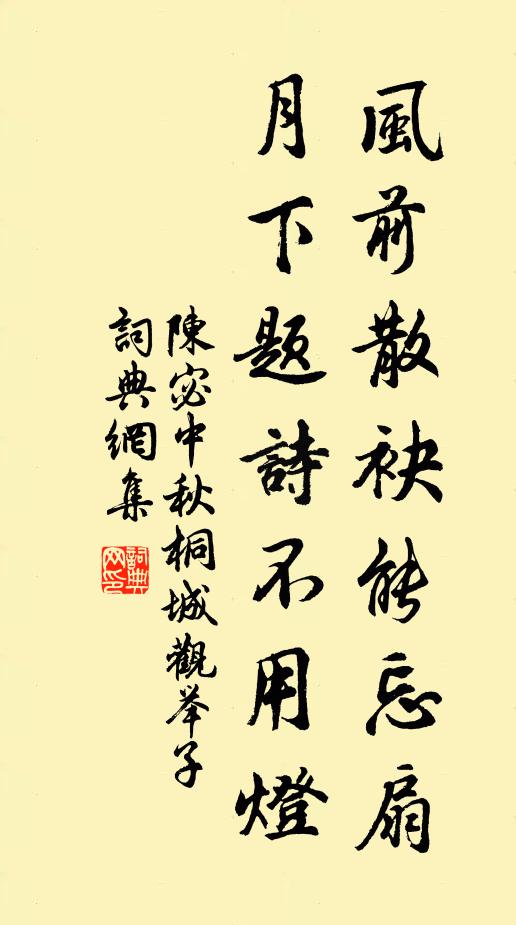 風前散袂能忘扇
月下题詩不用燈
陳宓中秋桐城觀举子
詞典網集
詞典网印